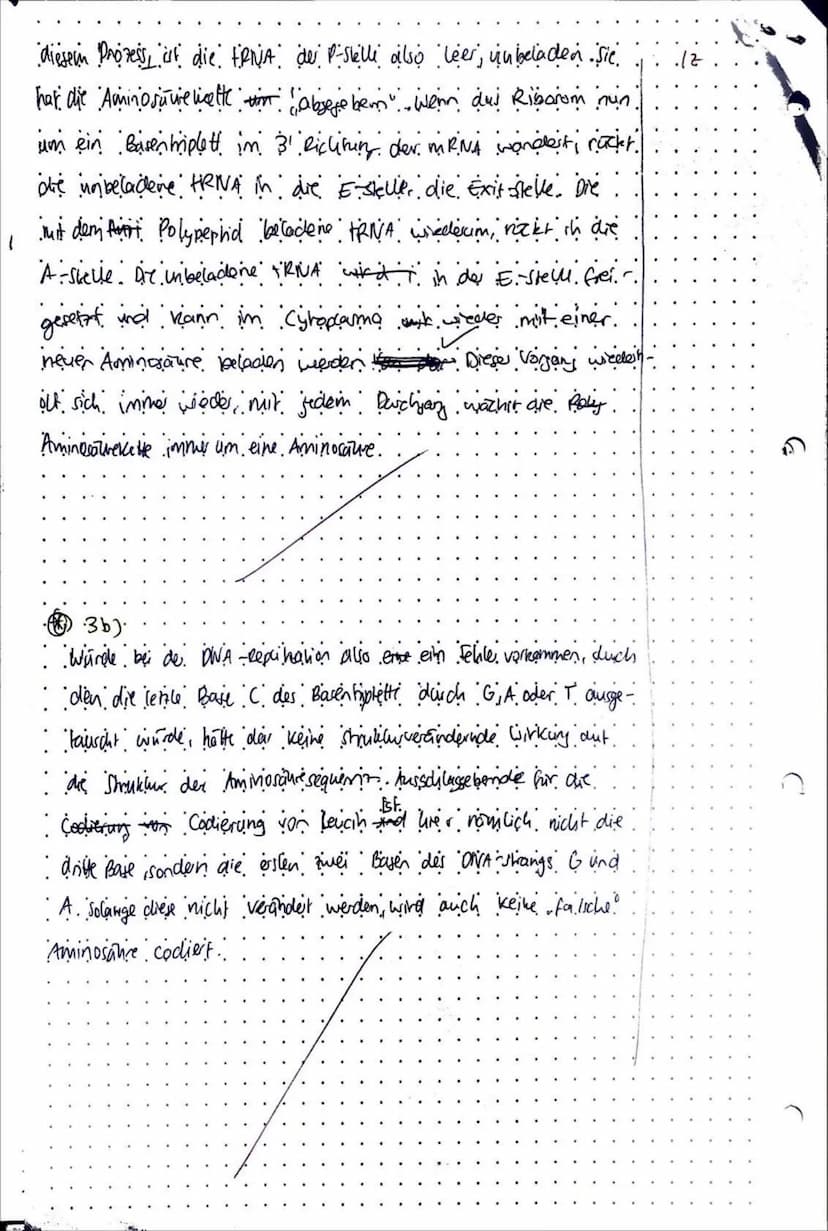 diesem Prozess, ist die tRNA der P-Stelle also leer, unbeladen. Sie
12
hat die Aminosäurekette "abgegeben". Wenn das Ribosom nun
um ein Basentriplett in 3' Richtung der mRNA wandert, rückt
die unbeladene tRNA in die E-Stelle, die Exit-Stelle. Die
mit dem Polypeptid beladene tRNA wiederum, rückt in die
A-Stelle. Die unbeladene tRNA in der E-Stelle frei-
gesetzt und kann im Cytoplasma wieder mit einer
neuen Aminosäure beladen werden. Dieser Vorgang wiederh-
olt sich immer wieder, mit jedem Durchgang wächst die
Aminosäurekette immer um eine Aminosäure.
3b)
Würde bei der DNA-Replikation also ein Fehler vorkommen, durch
den die letzte Base C des Basentripletts durch G, A oder T ausge-
tauscht würde, hätte das keine strukturverändernde Wirkung auf
die Struktur der Aminosäuresequenz. Ausschlaggebende für die
Codierung von Leucin ist hier nämlich nicht die
dritte Base, sondern die ersten zwei Basen des DNA-Strangs G und
A. Solange diese nicht verändert werden, wird auch keine "falsche"
Aminosäure codiert.